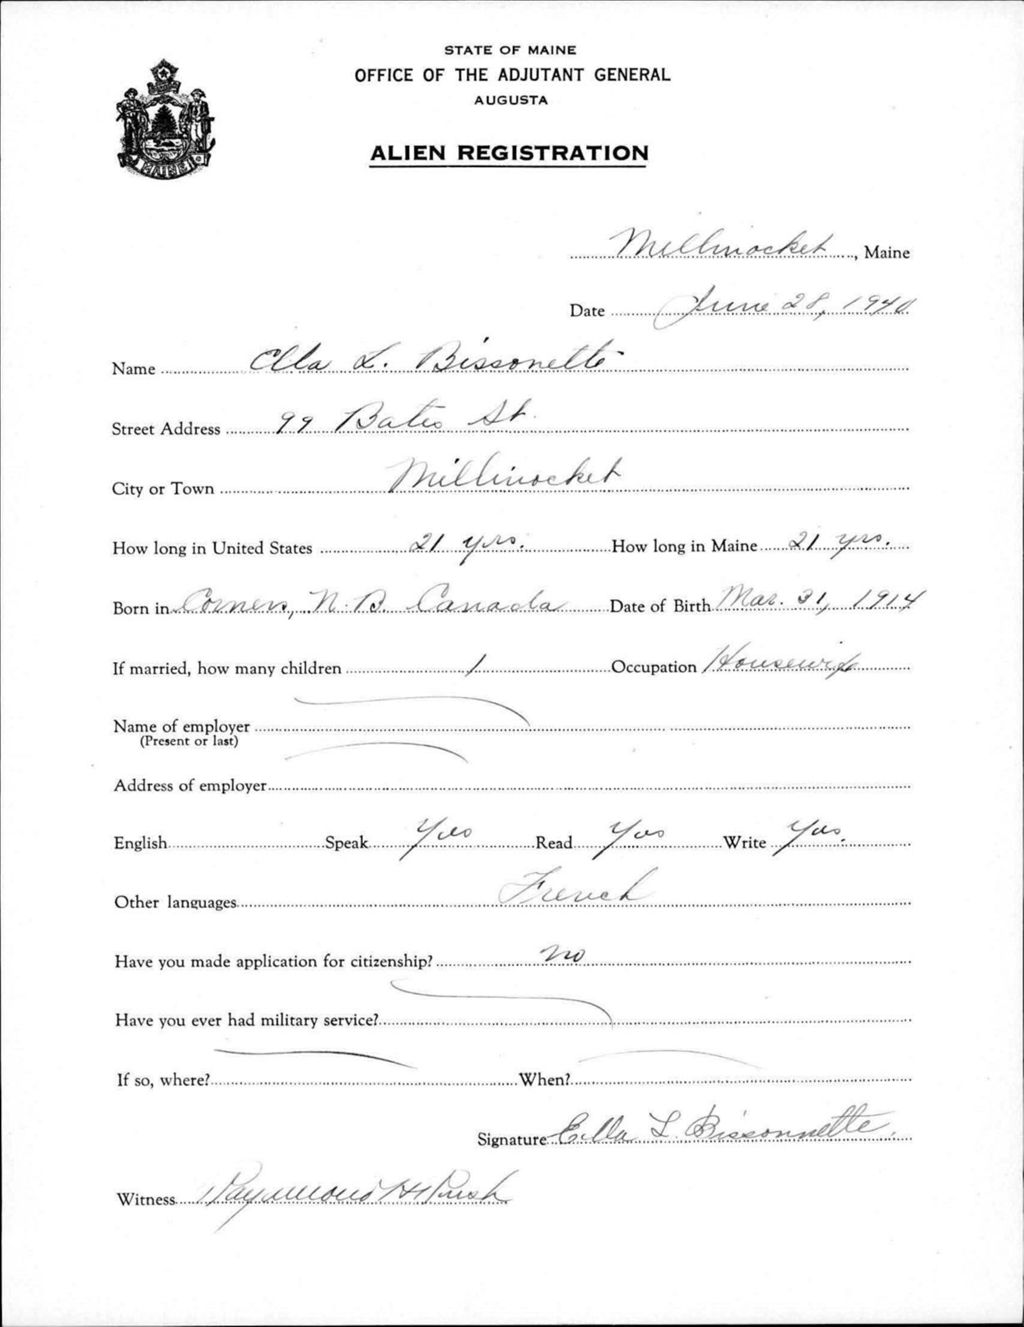 STATE OF MAINE
OFFICE OF THE ADJUTANT GENERAL
AUGUSTA
ALIEN REGISTRATION
MAINE
Millinocket, Maine
Date June 28, 1940
Name Ella L. Bissonette
Street Address 99 Bates St.
City or Town Millinocket
How long in United States 21 yrs. How long in Maine 21 yrs.
Born in Corners, N.B. Canada Date of Birth Mar. 31, 1914
If married, how many children 1 Occupation Housewife
Name of employer
(Present or last)
Address of employer
English Speak Yes Read Yes Write Yes.
Other languages French
Have you made application for citizenship? no
Have you ever had military service?
If so, where? When?
Signature Ella L. Bissonnette.
Witness Raymond H